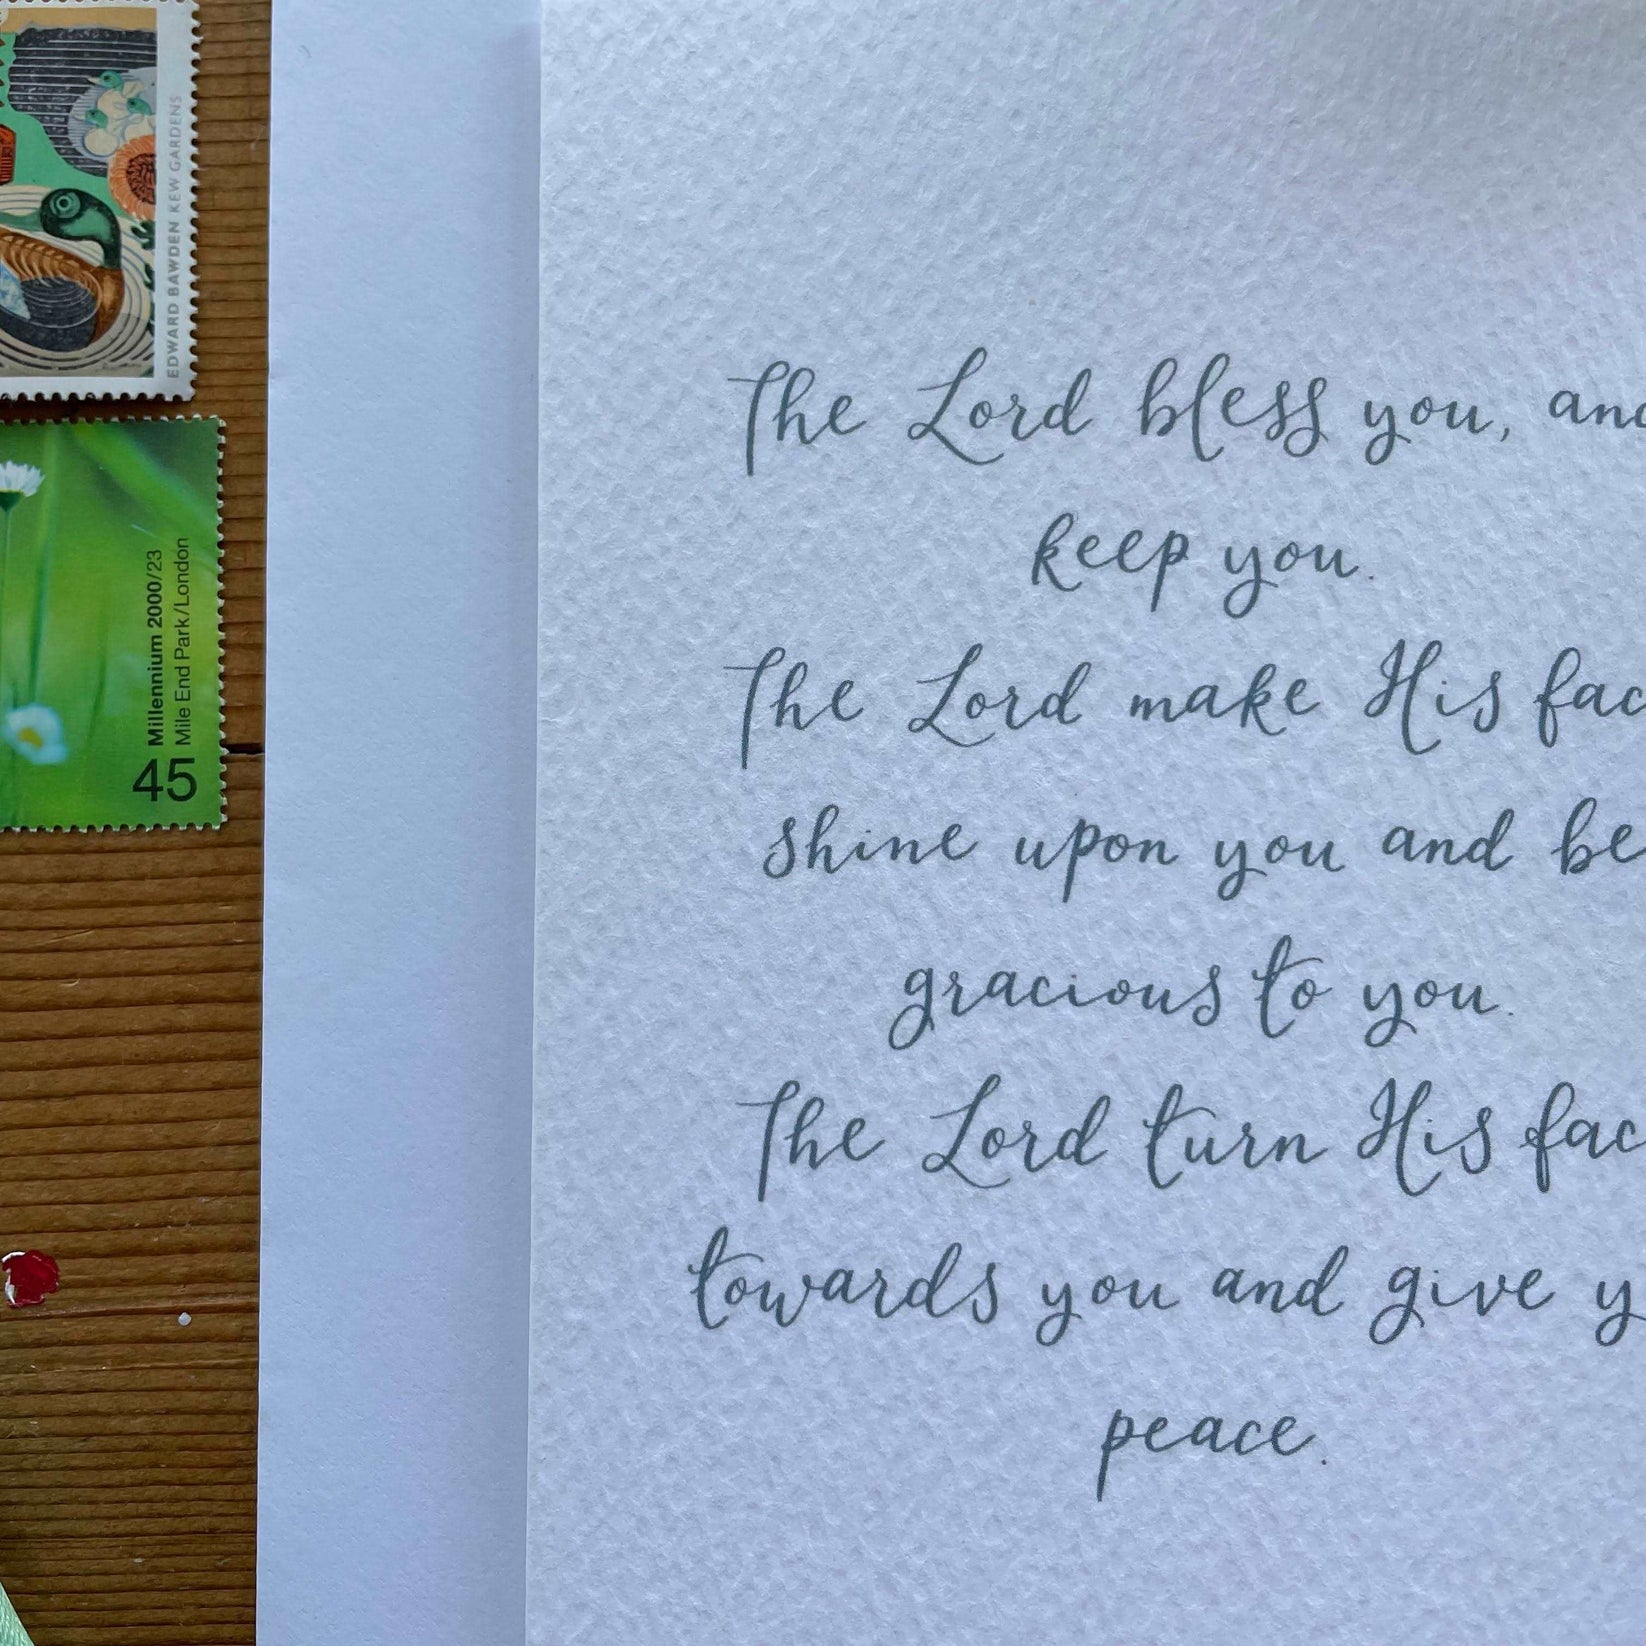 EDWARD BAWDEN KEW GARDENS
Millennium 2000/23
Mile End Park/London
45
The Lord bless you, and
keep you.
The Lord make His fac
shine upon you and be
gracious to you.
The Lord turn His fac
towards you and give y
peace.